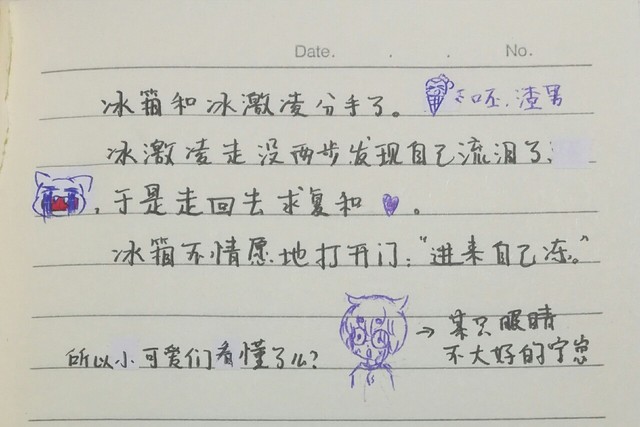 Date. . . No.
冰箱和冰激凌分手了。 口丕,渣男
冰激凌走没两步发现自己流泪了,
,于是走回去求复和 。
冰箱不情愿地打开门:“进来自己冻。”
所以小可爱们看懂了么? → 某只眼睛
不大好的字崽